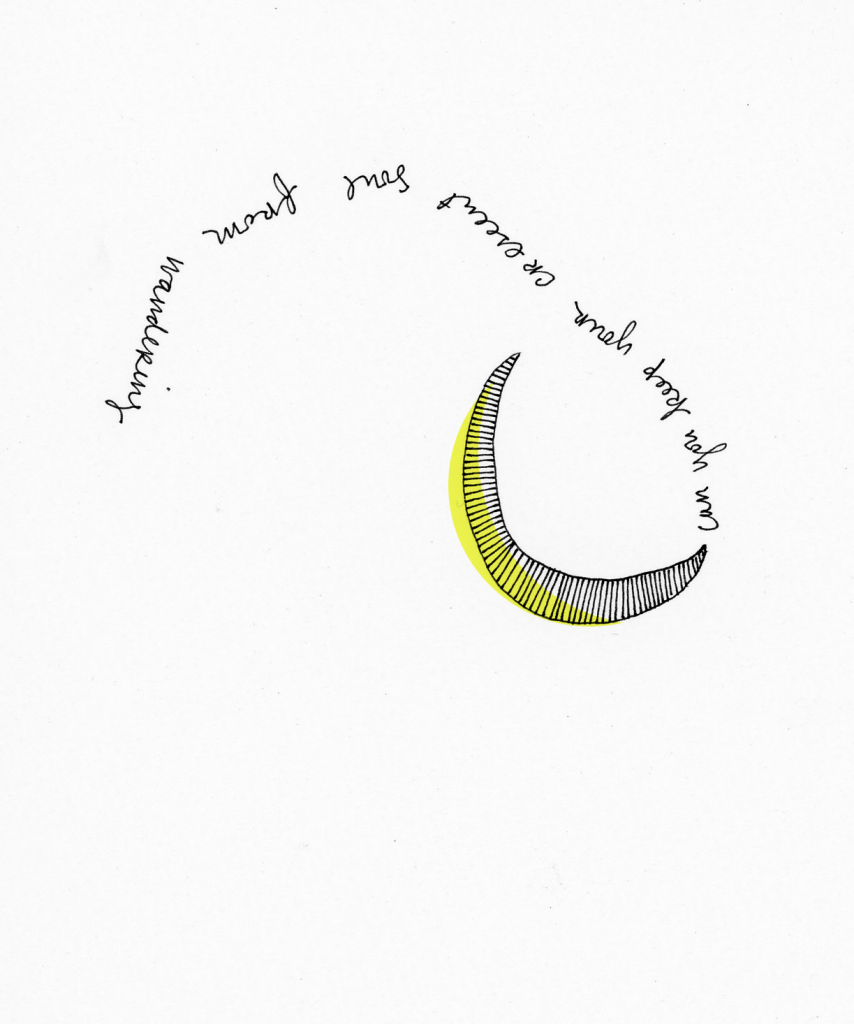 can you keep your crescent soul from wandering